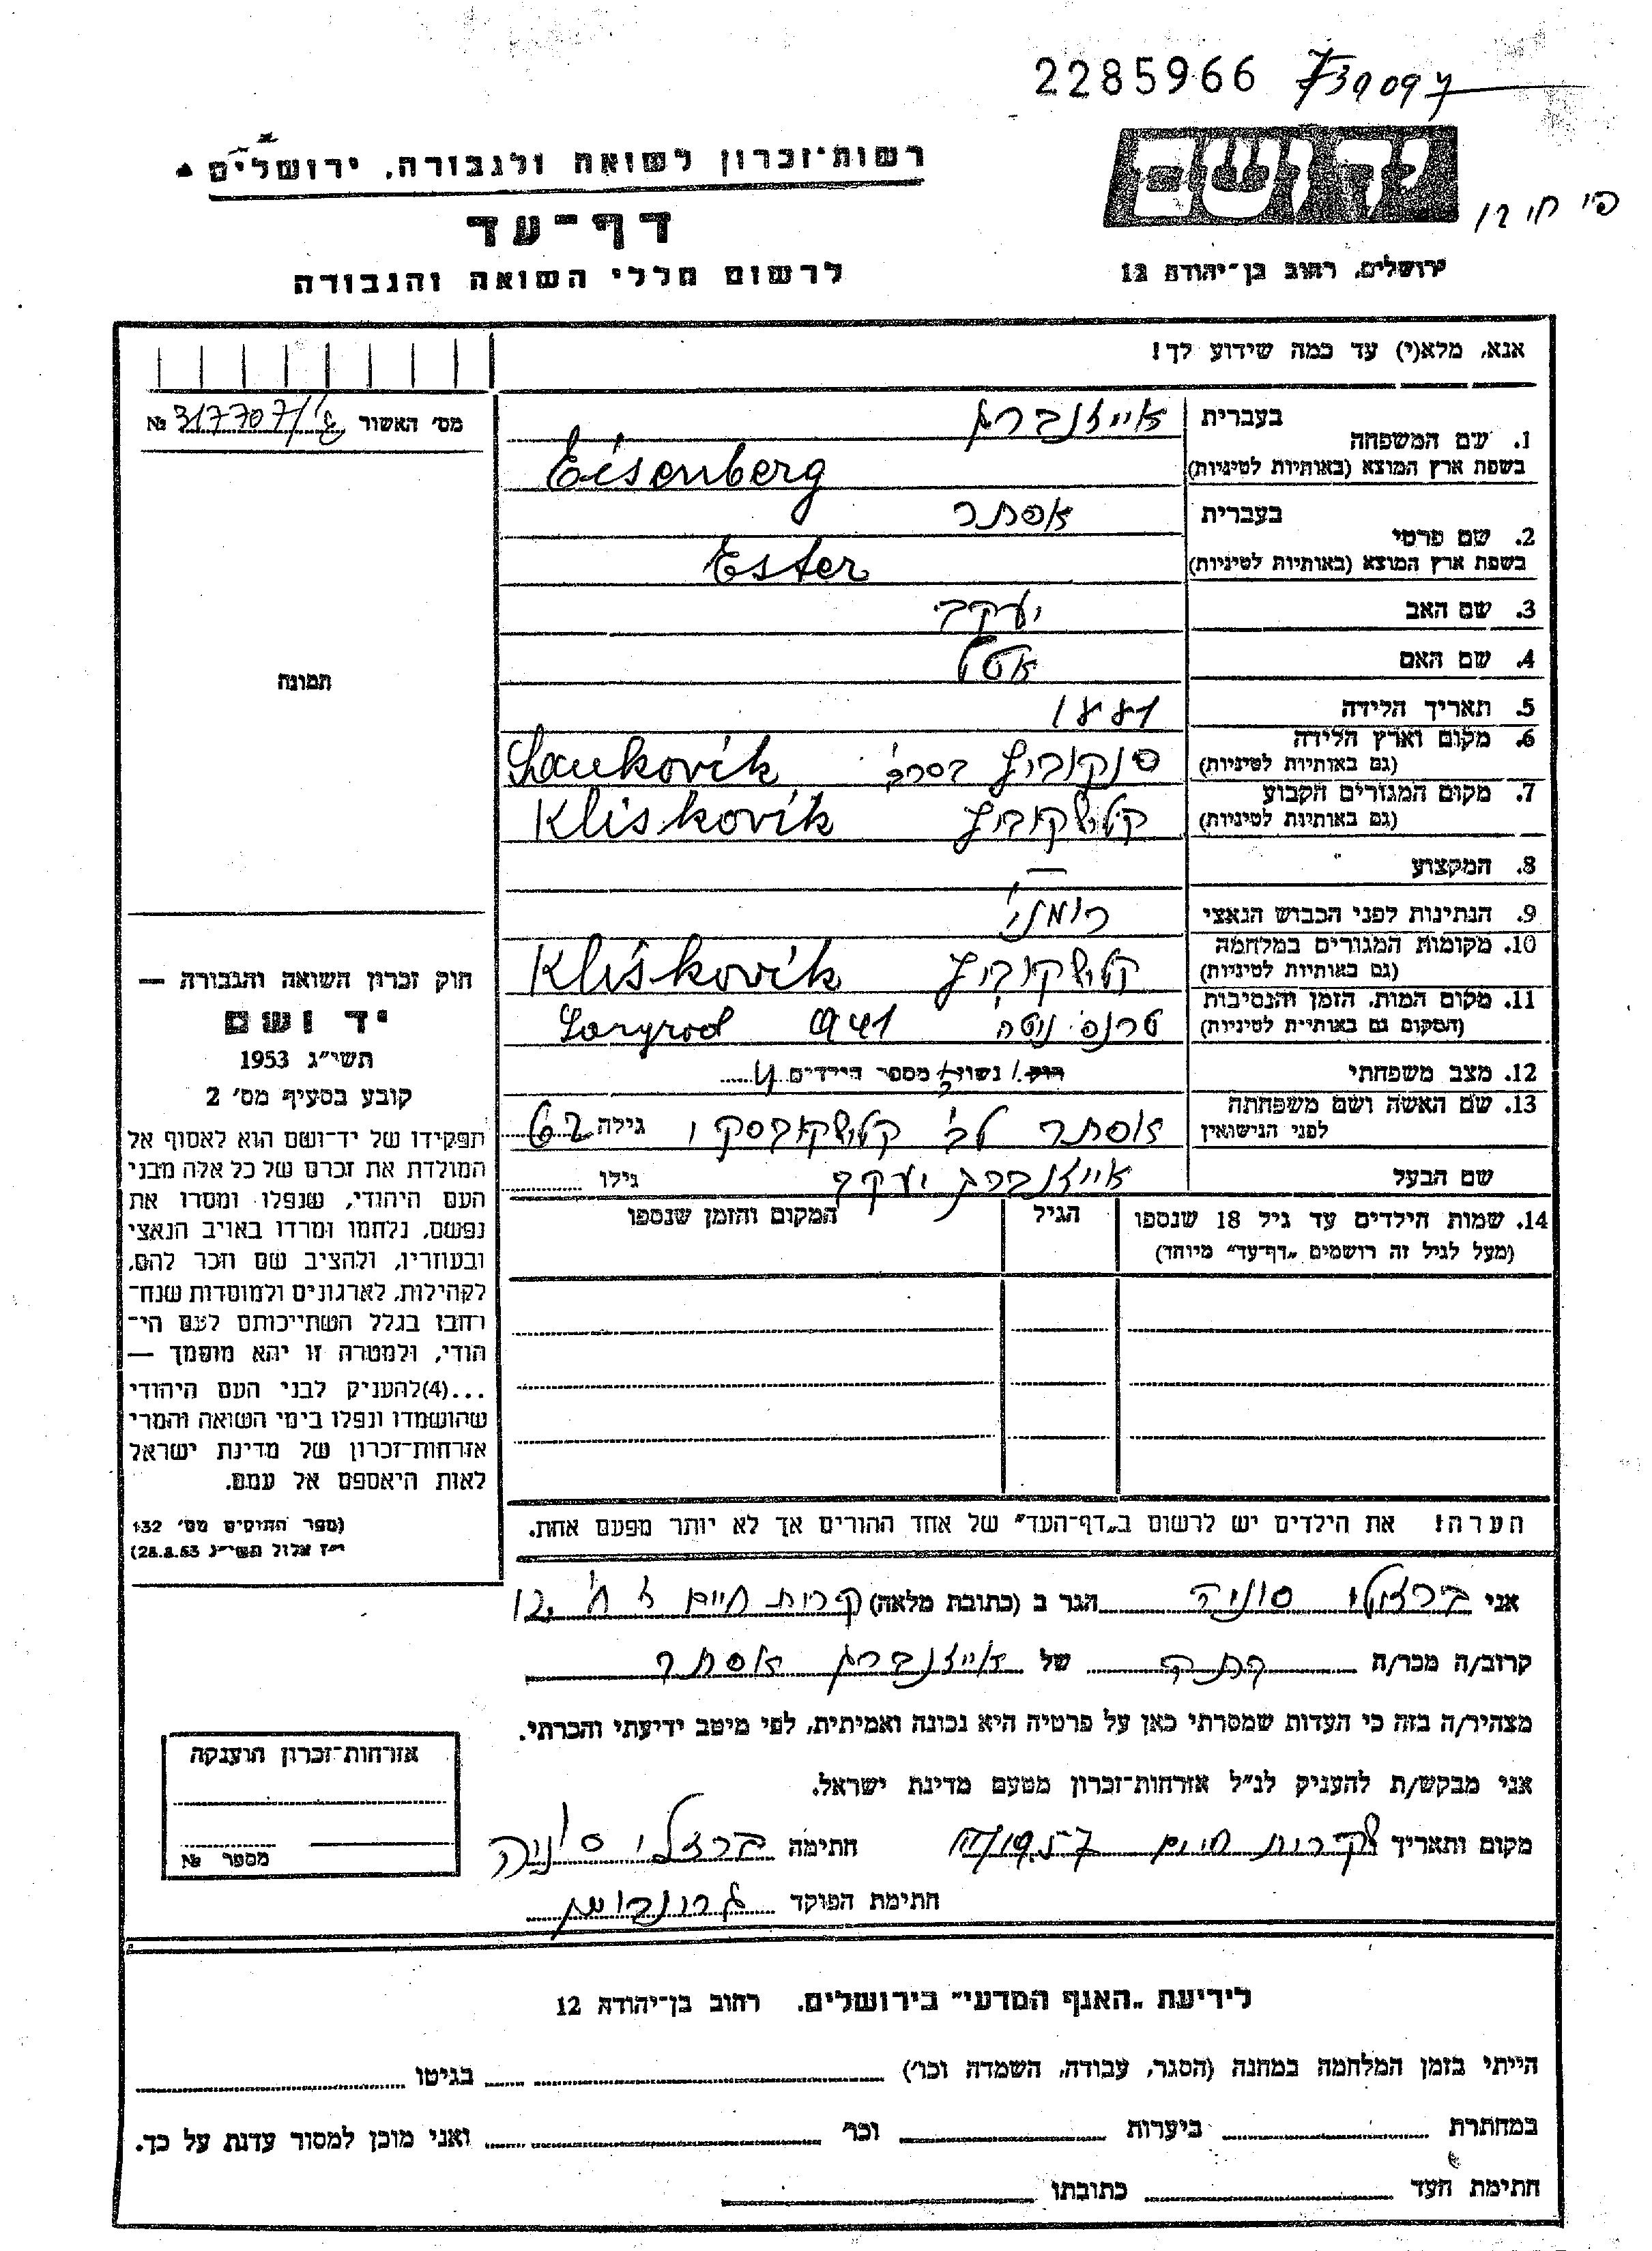 2285966
רשות־זכרון לשואה ולגבורה, ירושלים
יד ושם
דף־עד
לרשום חללי השואה והגבורה
ירושלים, רחוב בן־יהודה 12
אנא, מלא(י) עד כמה שידוע לך!
מס׳ האשור № 317707/
1. שם המשפחה בעברית אייזנברג
בשפת ארץ המוצא (באותיות לטיניות) Eisenberg
2. שם פרטי בעברית אסתר
בשפת ארץ המוצא (באותיות לטיניות) Ester
3. שם האב יעקב
4. שם האם
תמונה
5. תאריך הלידה 1881
6. מקום וארץ הלידה
(גם באותיות לטיניות)
7. מקום המגורים הקבוע
(גם באותיות לטיניות) קלישקוביץ Kliskovik
8. המקצוע —
9. הנתינות לפני הכבוש הנאצי רומני
10. מקומות המגורים במלחמה
(גם באותיות לטיניות) קלישקוביץ Kliskovik
11. מקום המות, הזמן והנסיבות
(המקום גם באותיות לטיניות) 941
12. מצב משפחתי רוק/ נשוי/אה מספר הילדים 4
13. שם האשה ושם משפחתה
לפני הנישואין אסתר גילה
שם הבעל אייזנברג יעקב גילו
14. שמות הילדים עד גיל 18 שנספו הגיל המקום והזמן שנספו
(מעל לגיל זה רושמים „דף־עד” מיוחד)
חוק זכרון השואה והגבורה —
יד ושם
תשי״ג 1953
קובע בסעיף מס׳ 2
תפקידו של יד־ושם הוא לאסוף אל
המולדת את זכרם של כל אלה מבני
העם היהודי, שנפלו ומסרו את
נפשם, נלחמו ומרדו באויב הנאצי
ובעוזריו, ולהציב שם וזכר להם,
לקהילות, לארגונים ולמוסדות שנח־
רחבו בגלל השתייכותם לעם הי־
הודי, ולמטרה זו יהא מוסמך —
...(4) להעניק לבני העם היהודי
שהושמדו ונפלו בימי השואה והמרי
אזרחות־זכרון של מדינת ישראל
לאות היאספם אל עמם.
(ספר החוקים מס׳ 132
י״ז אלול תשי״ג 28.8.53)
הערה! את הילדים יש לרשום ב„דף־העד” של אחד ההורים אך לא יותר מפעם אחת.
אני ברזלי סוניה הגר ב (כתובת מלאה) קרית חיים
קרוב/ה מכר/ה של אייזנברג אסתר
מצהיר/ה בזה כי העדות שמסרתי כאן על פרטיה היא נכונה ואמיתית, לפי מיטב ידיעתי והכרתי.
אני מבקש/ת להעניק לנ״ל אזרחות־זכרון מטעם מדינת ישראל.
מקום ותאריך קרית חיים חתימה ברזלי סוניה
חתימת הפוקד
אזרחות־זכרון הוענקה
מספר №
לידיעת „האגף המדעי” בירושלים. רחוב בן־יהודה 12
הייתי בזמן המלחמה במחנה (הסגר, עבודה, השמדה וכו׳) בגיטו
במחתרת ביערות וכו׳ ואני מוכן למסור עדות על כך.
חתימת העד כתובתו